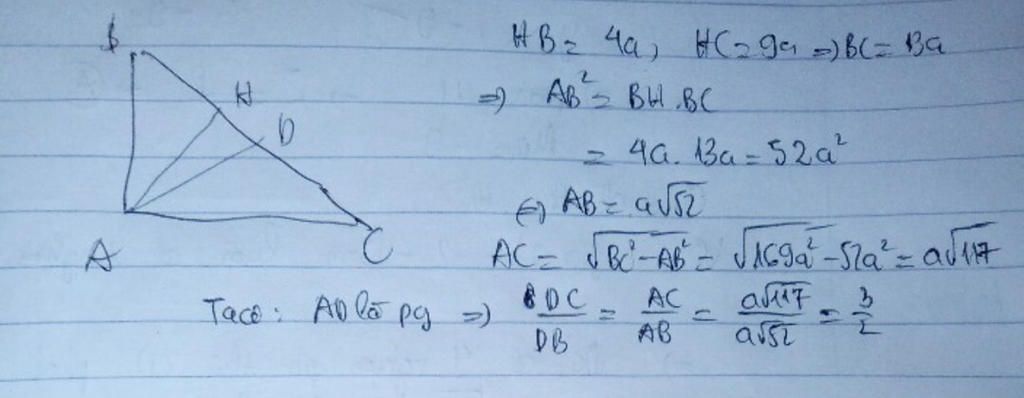 B
H
D
A
C
HB = 4a, HC = 9a => BC = 13a
=> AB² = BH.BC
= 4a.13a = 52a²
<=> AB = a√52
AC = √BC²-AB² = √169a²-52a² = a√117
Ta có: AD là pg => DC/DB = AC/AB = a√117/a√52 = 3/2